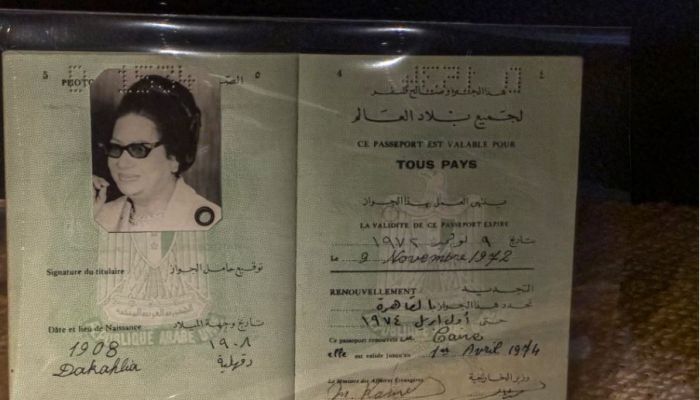 5
PHOTO
٥
Signature du titulaire
توقيع حامل الجواز
Dâte et lieu de Naissance
تاريخ وجهة الميلاد
1908
١٩٠٨
Dakahlia
دقهلية
4
٤
لجميع بلاد العالم
CE PASSEPORT EST VALABLE POUR
TOUS PAYS
ينتهى العمل بهذا الجواز
LA VALIDITE DE CE PASSEPORT EXPIRE
بتاريخ ٩ نوفمبر ١٩٧٢
Le 9 Novembre 1972
التجديد
RENOUVELLEMENT
تجدد هذا الجواز بالقاهرة
حتى أول ابريل ١٩٧٤
Ce passeport renouvelé au Caire
elle est valable jusqu'au 1er Avril 1974
Le Ministre des Affaires Étrangères
وزير الخارجية